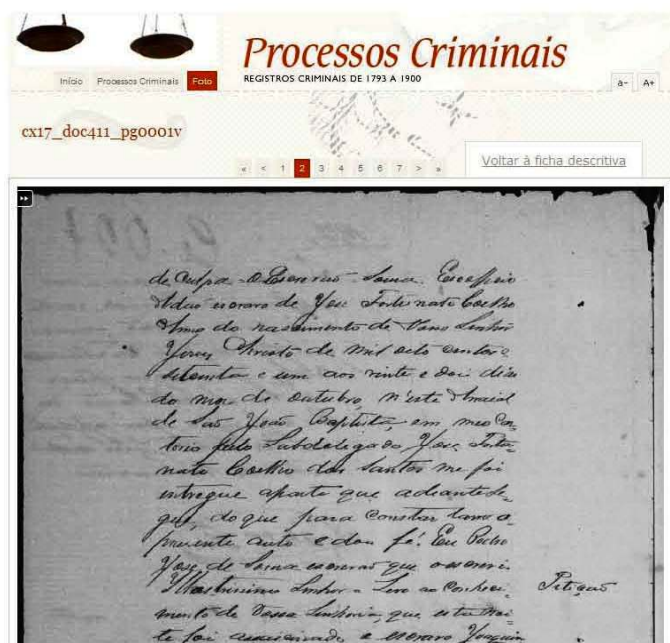 Processos Criminais
REGISTROS CRIMINAIS DE 1793 A 1900
Início Processos Criminais Foto
a- A+
cx17_doc411_pg0001v
« < 1 2 3 4 5 6 7 > »
Voltar à ficha descritiva
de Culpa o Escrivão Souza
escravo de José Fortunato Coelho
Anno do nascimento de Nosso Senhor
Jesus Christo de mil oito centos e
setenta e um aos vinte e dois dias
do mez de outubro n'este Arraial
de São João Baptista, em meo Car
torio pelo Subdelegado José Fortu
nato Coelho dos Santos me foi
entregue aparte que adiante se
gue, do que para constar lavro o
presente auto e dou fé. Eu Pedro
José de Souza escrivão que o escrevi
Illustrissimo Senhor = Levo ao Conheci Petição
mento de Vossa Senhoria, que esta noi
te foi assassinado o escravo Joaquim